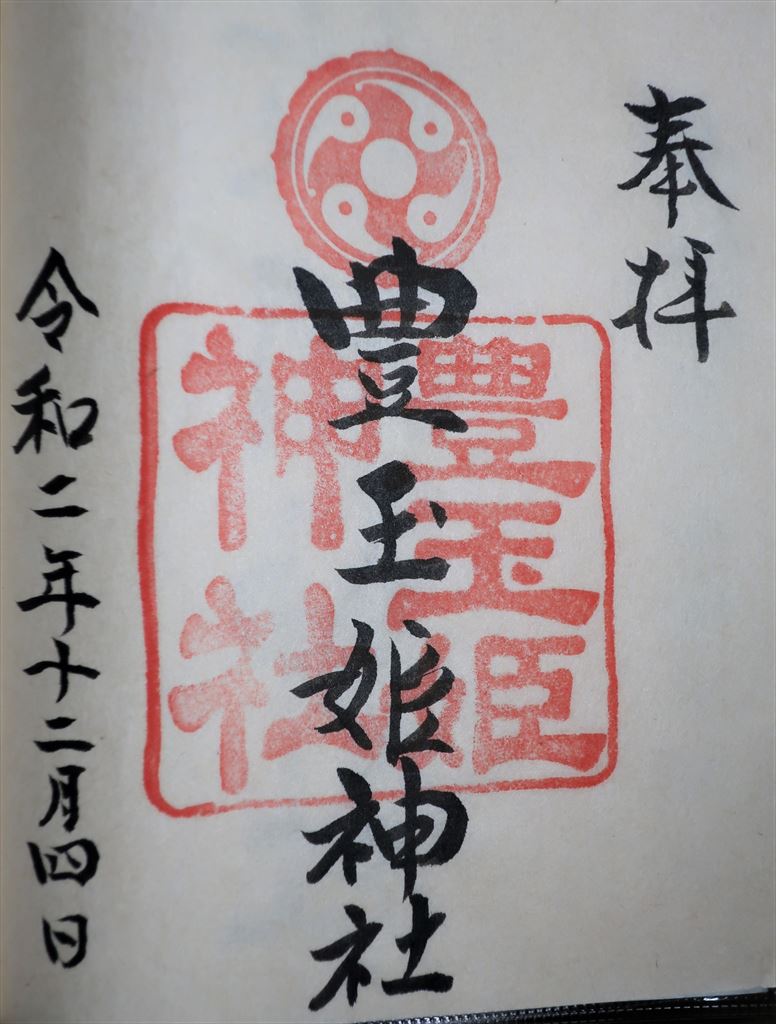 奉拝
豊玉姫神社
豊玉姫
神社
令和二年十二月四日